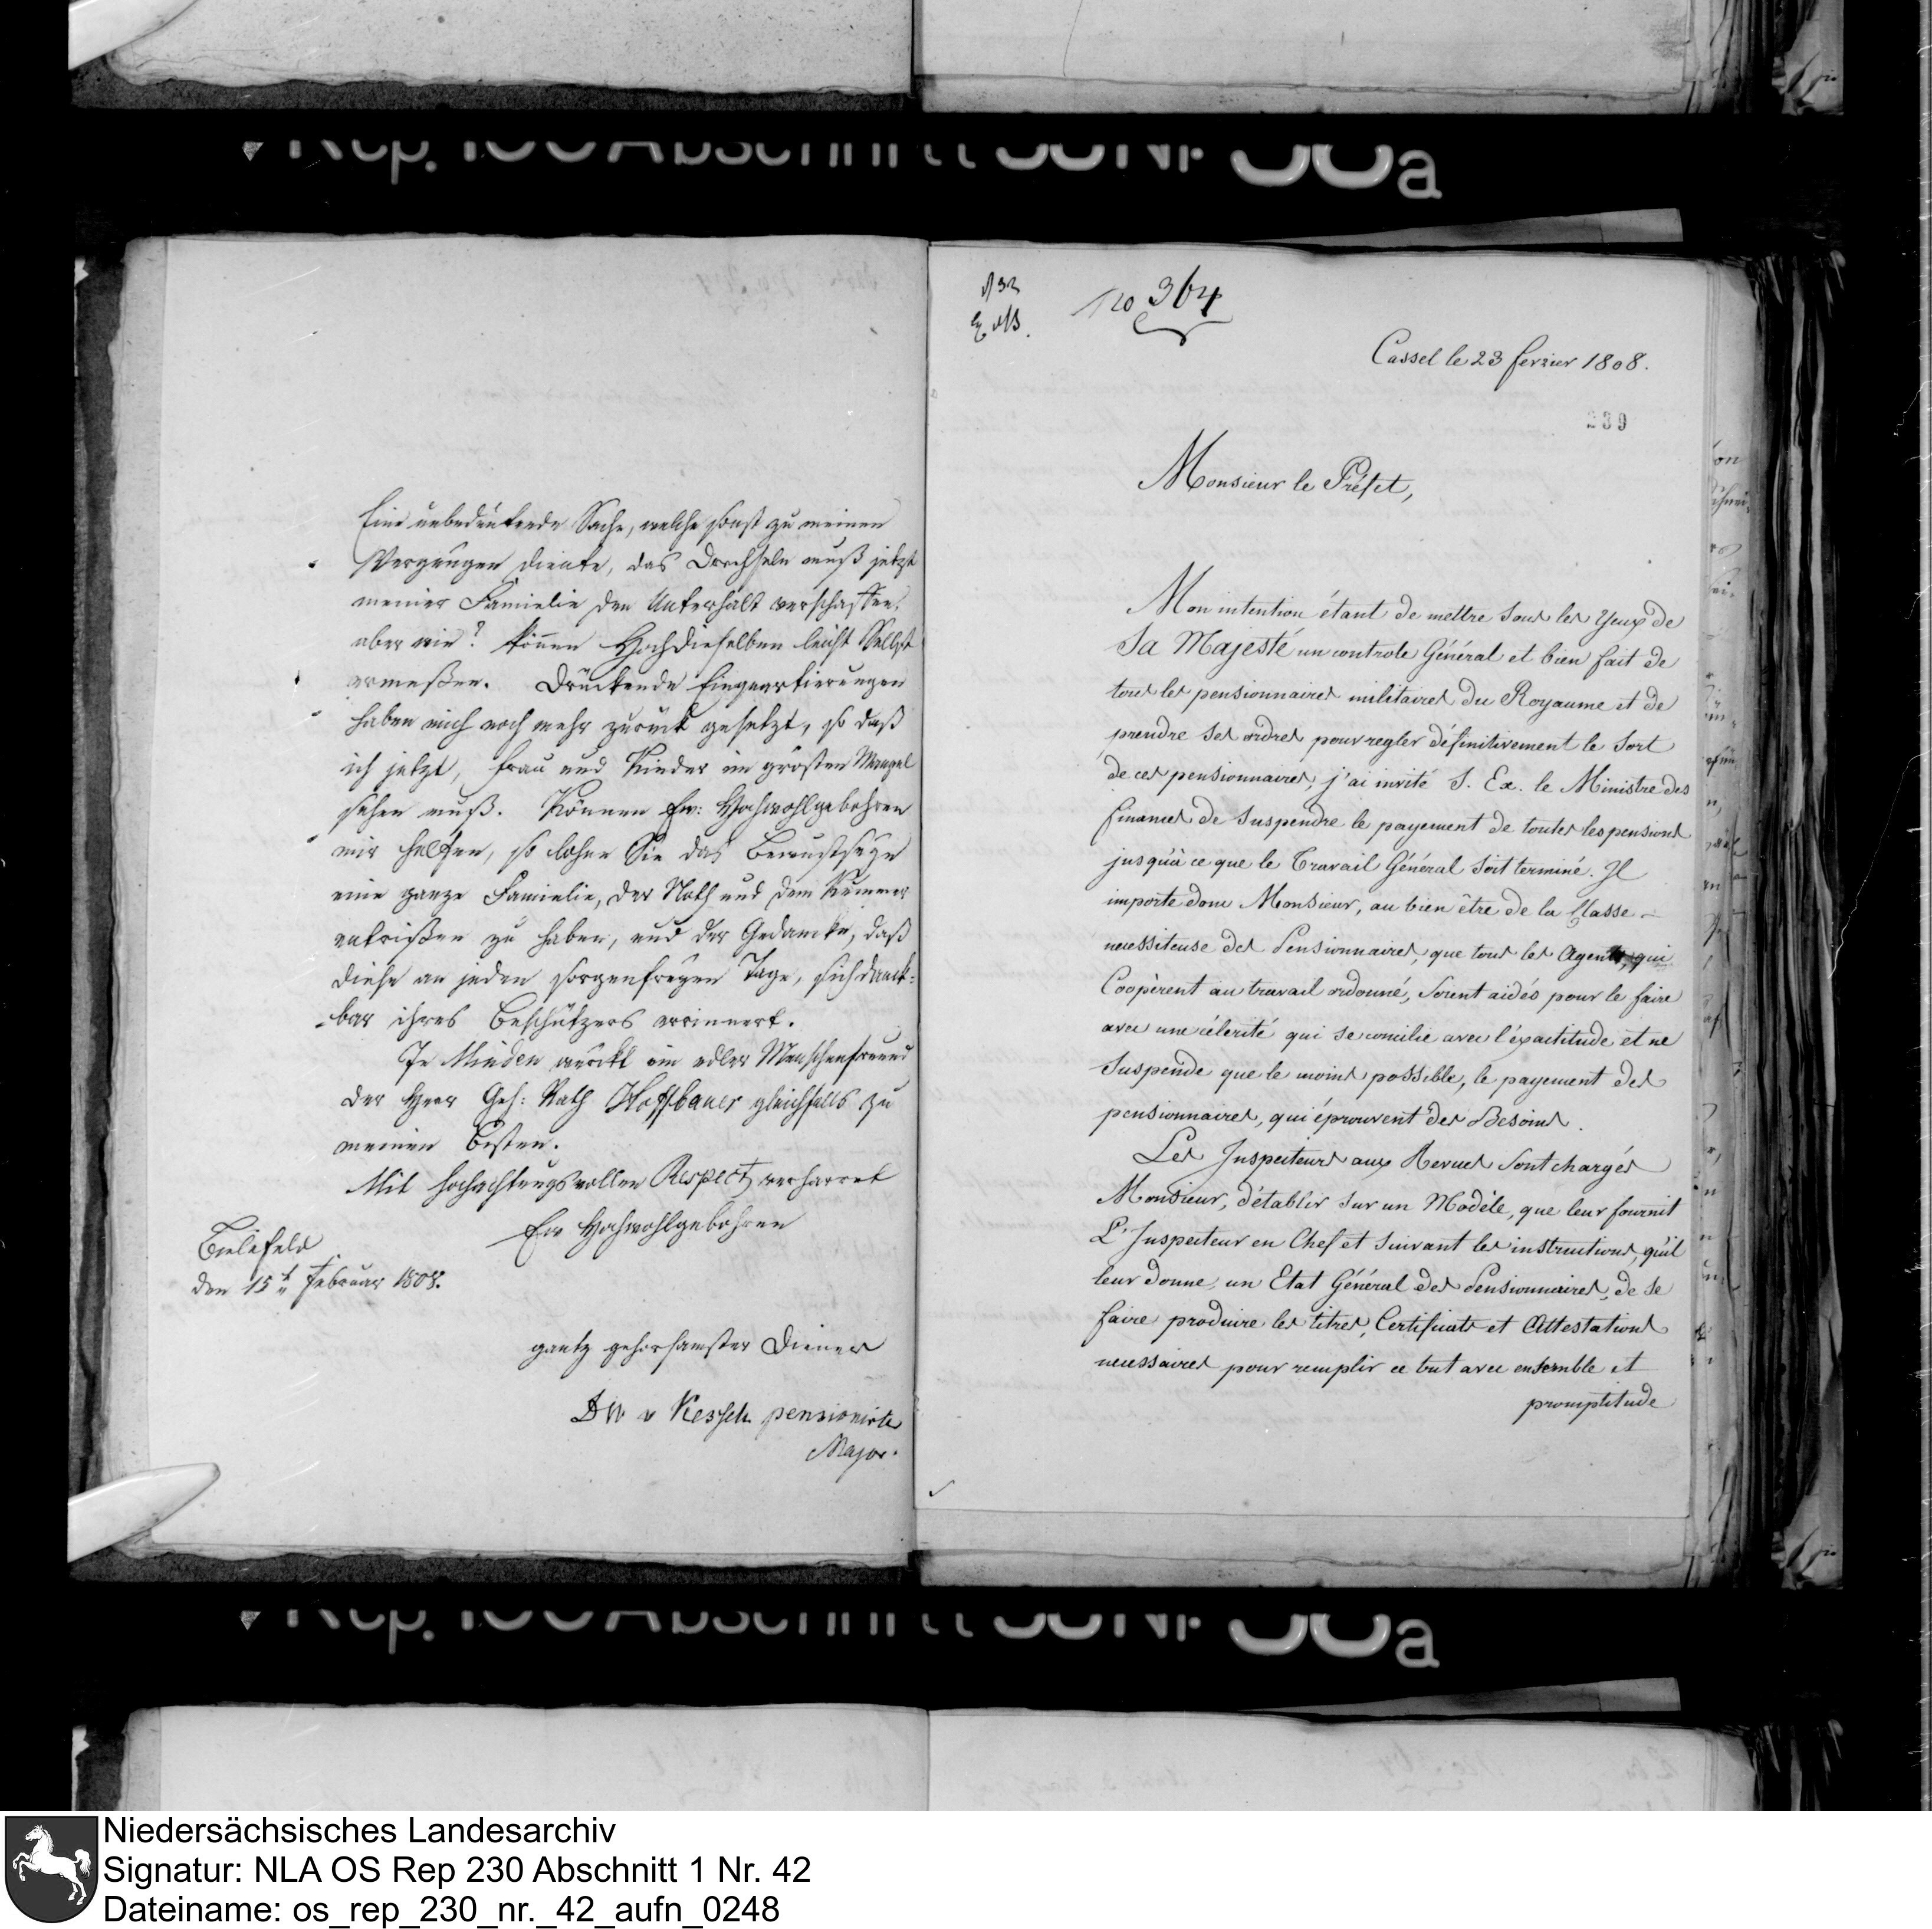 Eine unbedeutende Sache, welche sonst zu meinen
Vergnugen diente, das Drechseln muß jetzt
meiner Famielie den Unterhalt verschaffen,
aber wie? können Hochdieselben leicht Selbst
ermeßen. Drückende Einquartierungen
haben mich noch mehr zurück gesetzt, so daß
ich jetzt, Frau und Kinder im grösten Mangel
sehen muß. Können Ew: Hochwohlgebohren
mir helfen, so lohne Sie das Bewustseyn
eine ganze Famielie, der Noth und dem Kummer
entrißen zu haben, und der Gedancke, daß
diese an jeden sorgenfreyen Tage, sich danck-
-bar ihres Beschützers errinnert.
In Minden würckt ein edler Menschenfreund
der Herr Geh: Rath Hoffbauer gleichfalls zu
meinen Besten.
Mit hochachtungsvollen Respect verharret
Ew Hochwohlgebohren
Bielefeld
den 15t Februar 1808.
gantz gehorsamster Diener
v Kessel pensionirter
Major.
No 364
Cassel le 23 fevrier 1808.
239
Monsieur le Préfet,
Mon intention étant de mettre sous les yeux de
Sa Majesté un controle Général et bien fait de
tous les pensionnaires militaires du Royaume et de
prendre ses ordres pour regler définitivement le sort
de ces pensionnaires, j'ai invité S. Ex. le Ministre des
finances de suspendre le payement de toutes les pensions
jusqu'à ce que le Travail Général soit terminé. Il
importe donc Monsieur, au bien être de la Classe
necessiteuse des Pensionnaires, que tous les Agents, qui
Coopèrent au travail ordonné, soient aidés pour le faire
avec une célerité qui se concilie avec l'éxactitude et ne
suspende que le moins possible, le payement des
pensionnaires, qui éprouvent des Besoins.
Les Inspecteurs aux Revues sont chargés
Monsieur, d'établir sur un Modèle, que leur fournit
L'Inspecteur en Chef et suivant les instructions, qu'il
leur donne, un Etat Général des Pensionnaires, de se
faire produire les titres, Certificats et Attestations
necessaires pour remplir ce but avec ensemble et
promptitude
Niedersächsisches Landesarchiv
Signatur: NLA OS Rep 230 Abschnitt 1 Nr. 42
Dateiname: os_rep_230_nr._42_aufn_0248